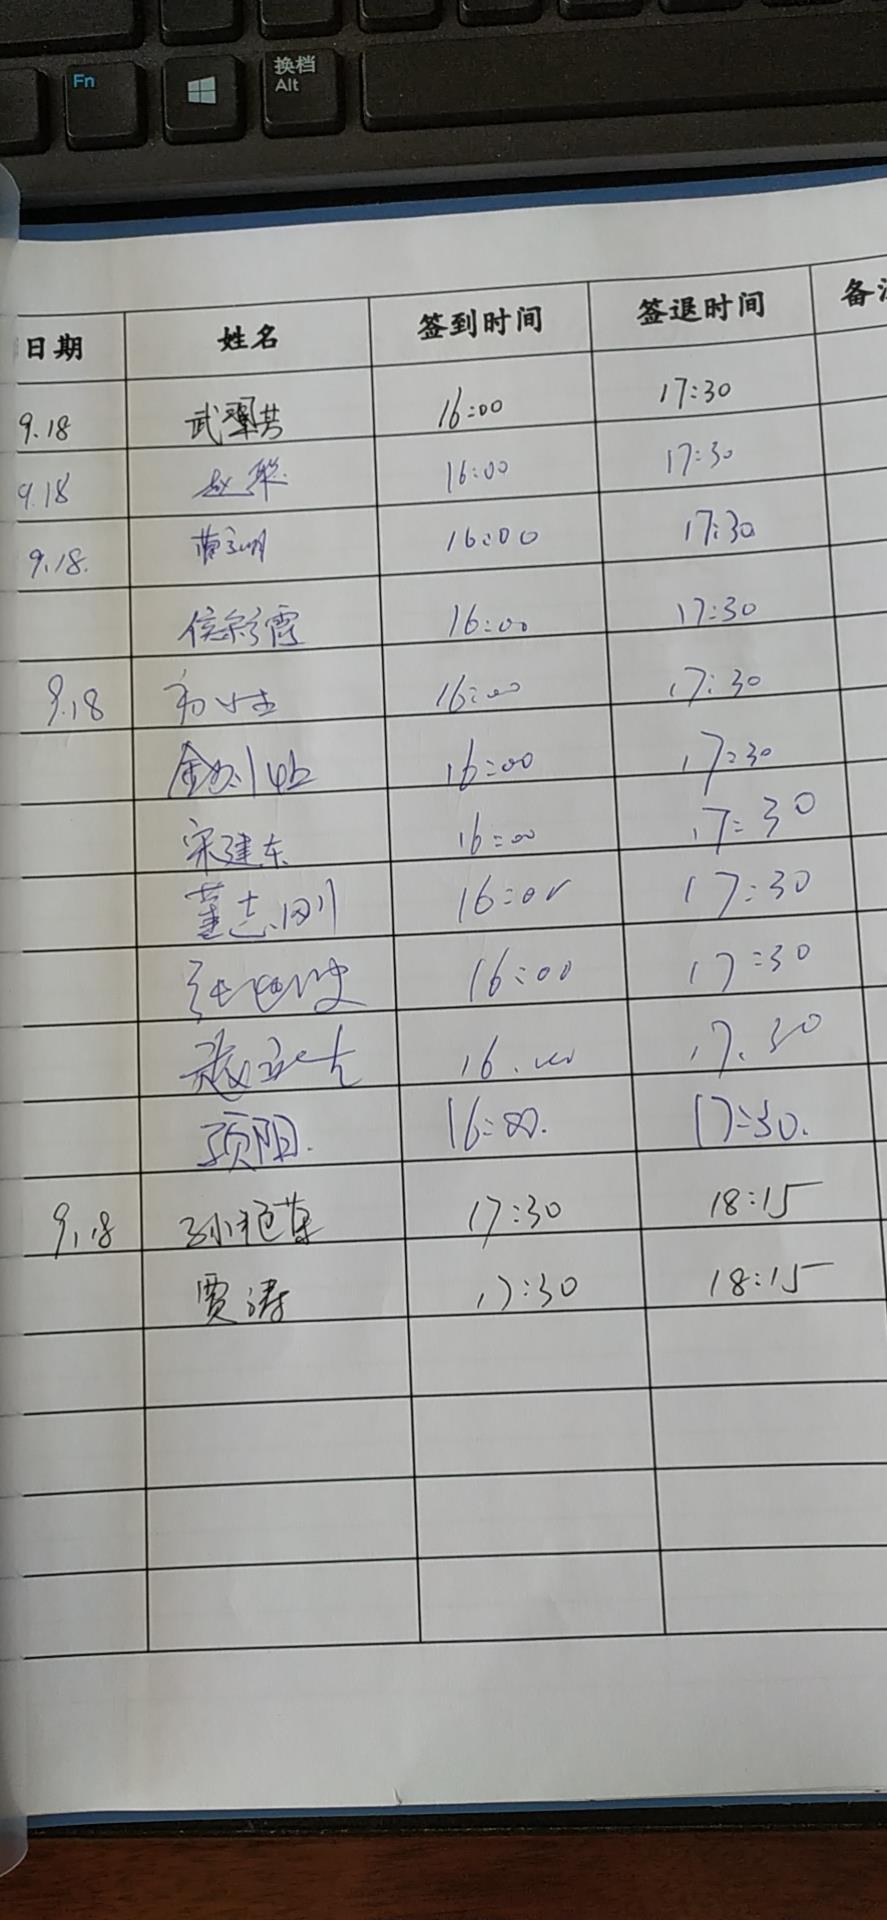 Fn
换档
Alt
日期 姓名 签到时间 签退时间 备注
9.18 武翠芬 16:00 17:30
9.18 赵聪 16:00 17:30
9.18. 16:00 17:30
侯彩霞 16:00 17:30
9.18 16:00 17:30
16:00 17:30
宋建东 16:00 17:30
董志刚 16:00 17:30
16:00 17:30
16.00 17.30
项阳. 16:00. 17:30.
9.18 17:30 18:15
贾涛 17:30 18:15